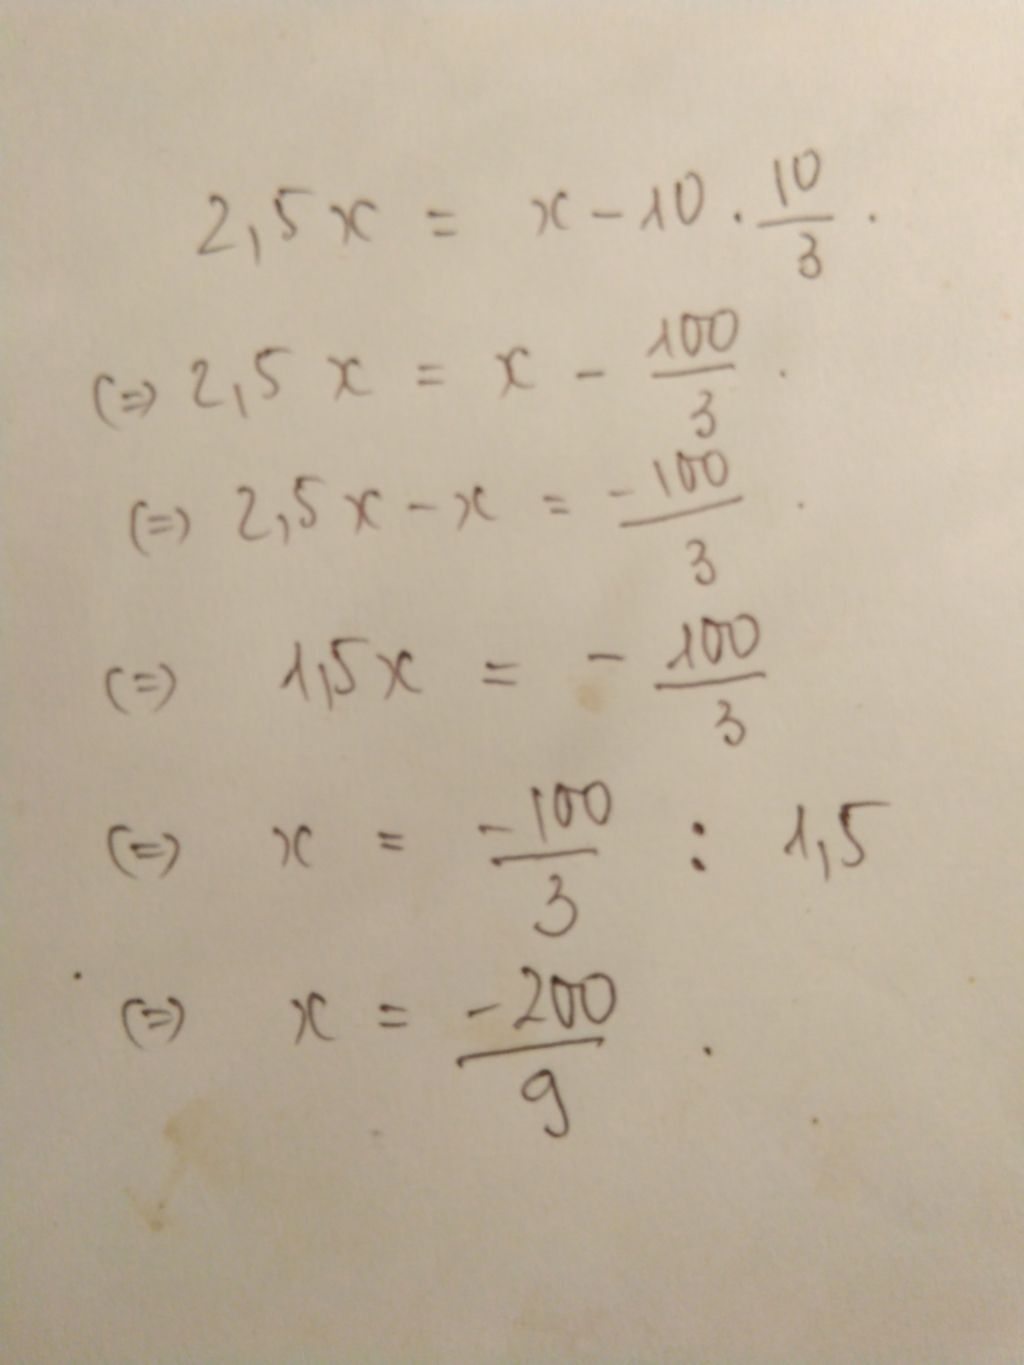 2,5x = x - 10 · 10/3 .
(=) 2,5x = x - 100/3 .
(=) 2,5x - x = -100/3 .
(=) 1,5x = - 100/3
(=) x = -100/3 : 1,5
(=) x = -200/9 .